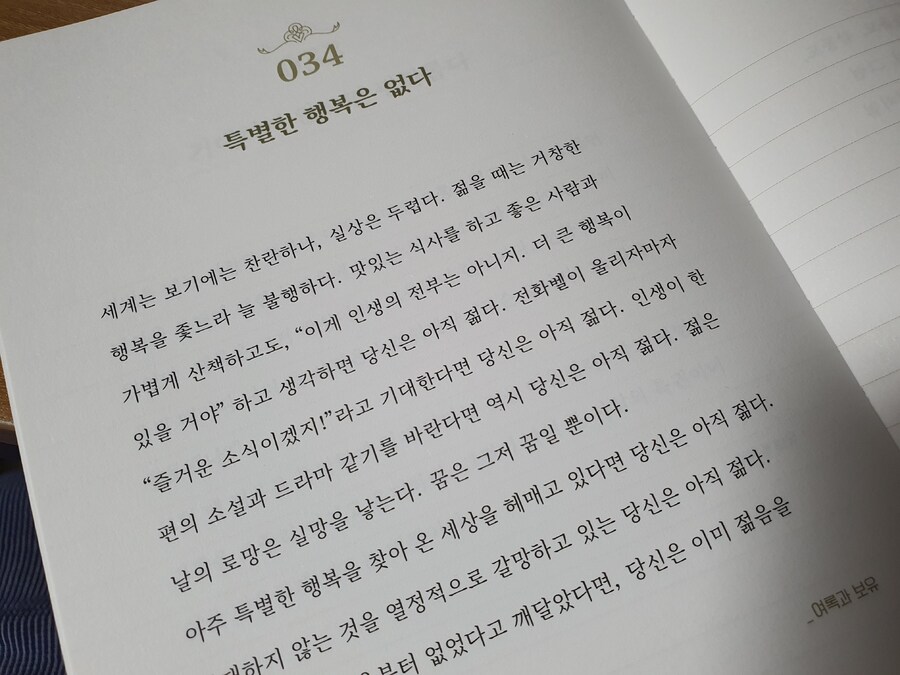 034
특별한 행복은 없다
세계는 보기에는 찬란하나, 실상은 두렵다. 젊을 때는 거창한
행복을 좇느라 늘 불행하다. 맛있는 식사를 하고 좋은 사람과
가볍게 산책하고도, “이게 인생의 전부는 아니지. 더 큰 행복이
있을 거야” 하고 생각하면 당신은 아직 젊다. 전화벨이 울리자마자
“즐거운 소식이겠지!”라고 기대한다면 당신은 아직 젊다. 인생이 한
편의 소설과 드라마 같기를 바란다면 역시 당신은 아직 젊다. 젊은
날의 로망은 실망을 낳는다. 꿈은 그저 꿈일 뿐이다.
아주 특별한 행복을 찾아 온 세상을 헤매고 있다면 당신은 아직 젊다.
않는 것을 열정적으로 갈망하고 있는 당신은 아직 젊다.
없었다고 깨달았다면, 당신은 이미 젊음을
_여록과 보유